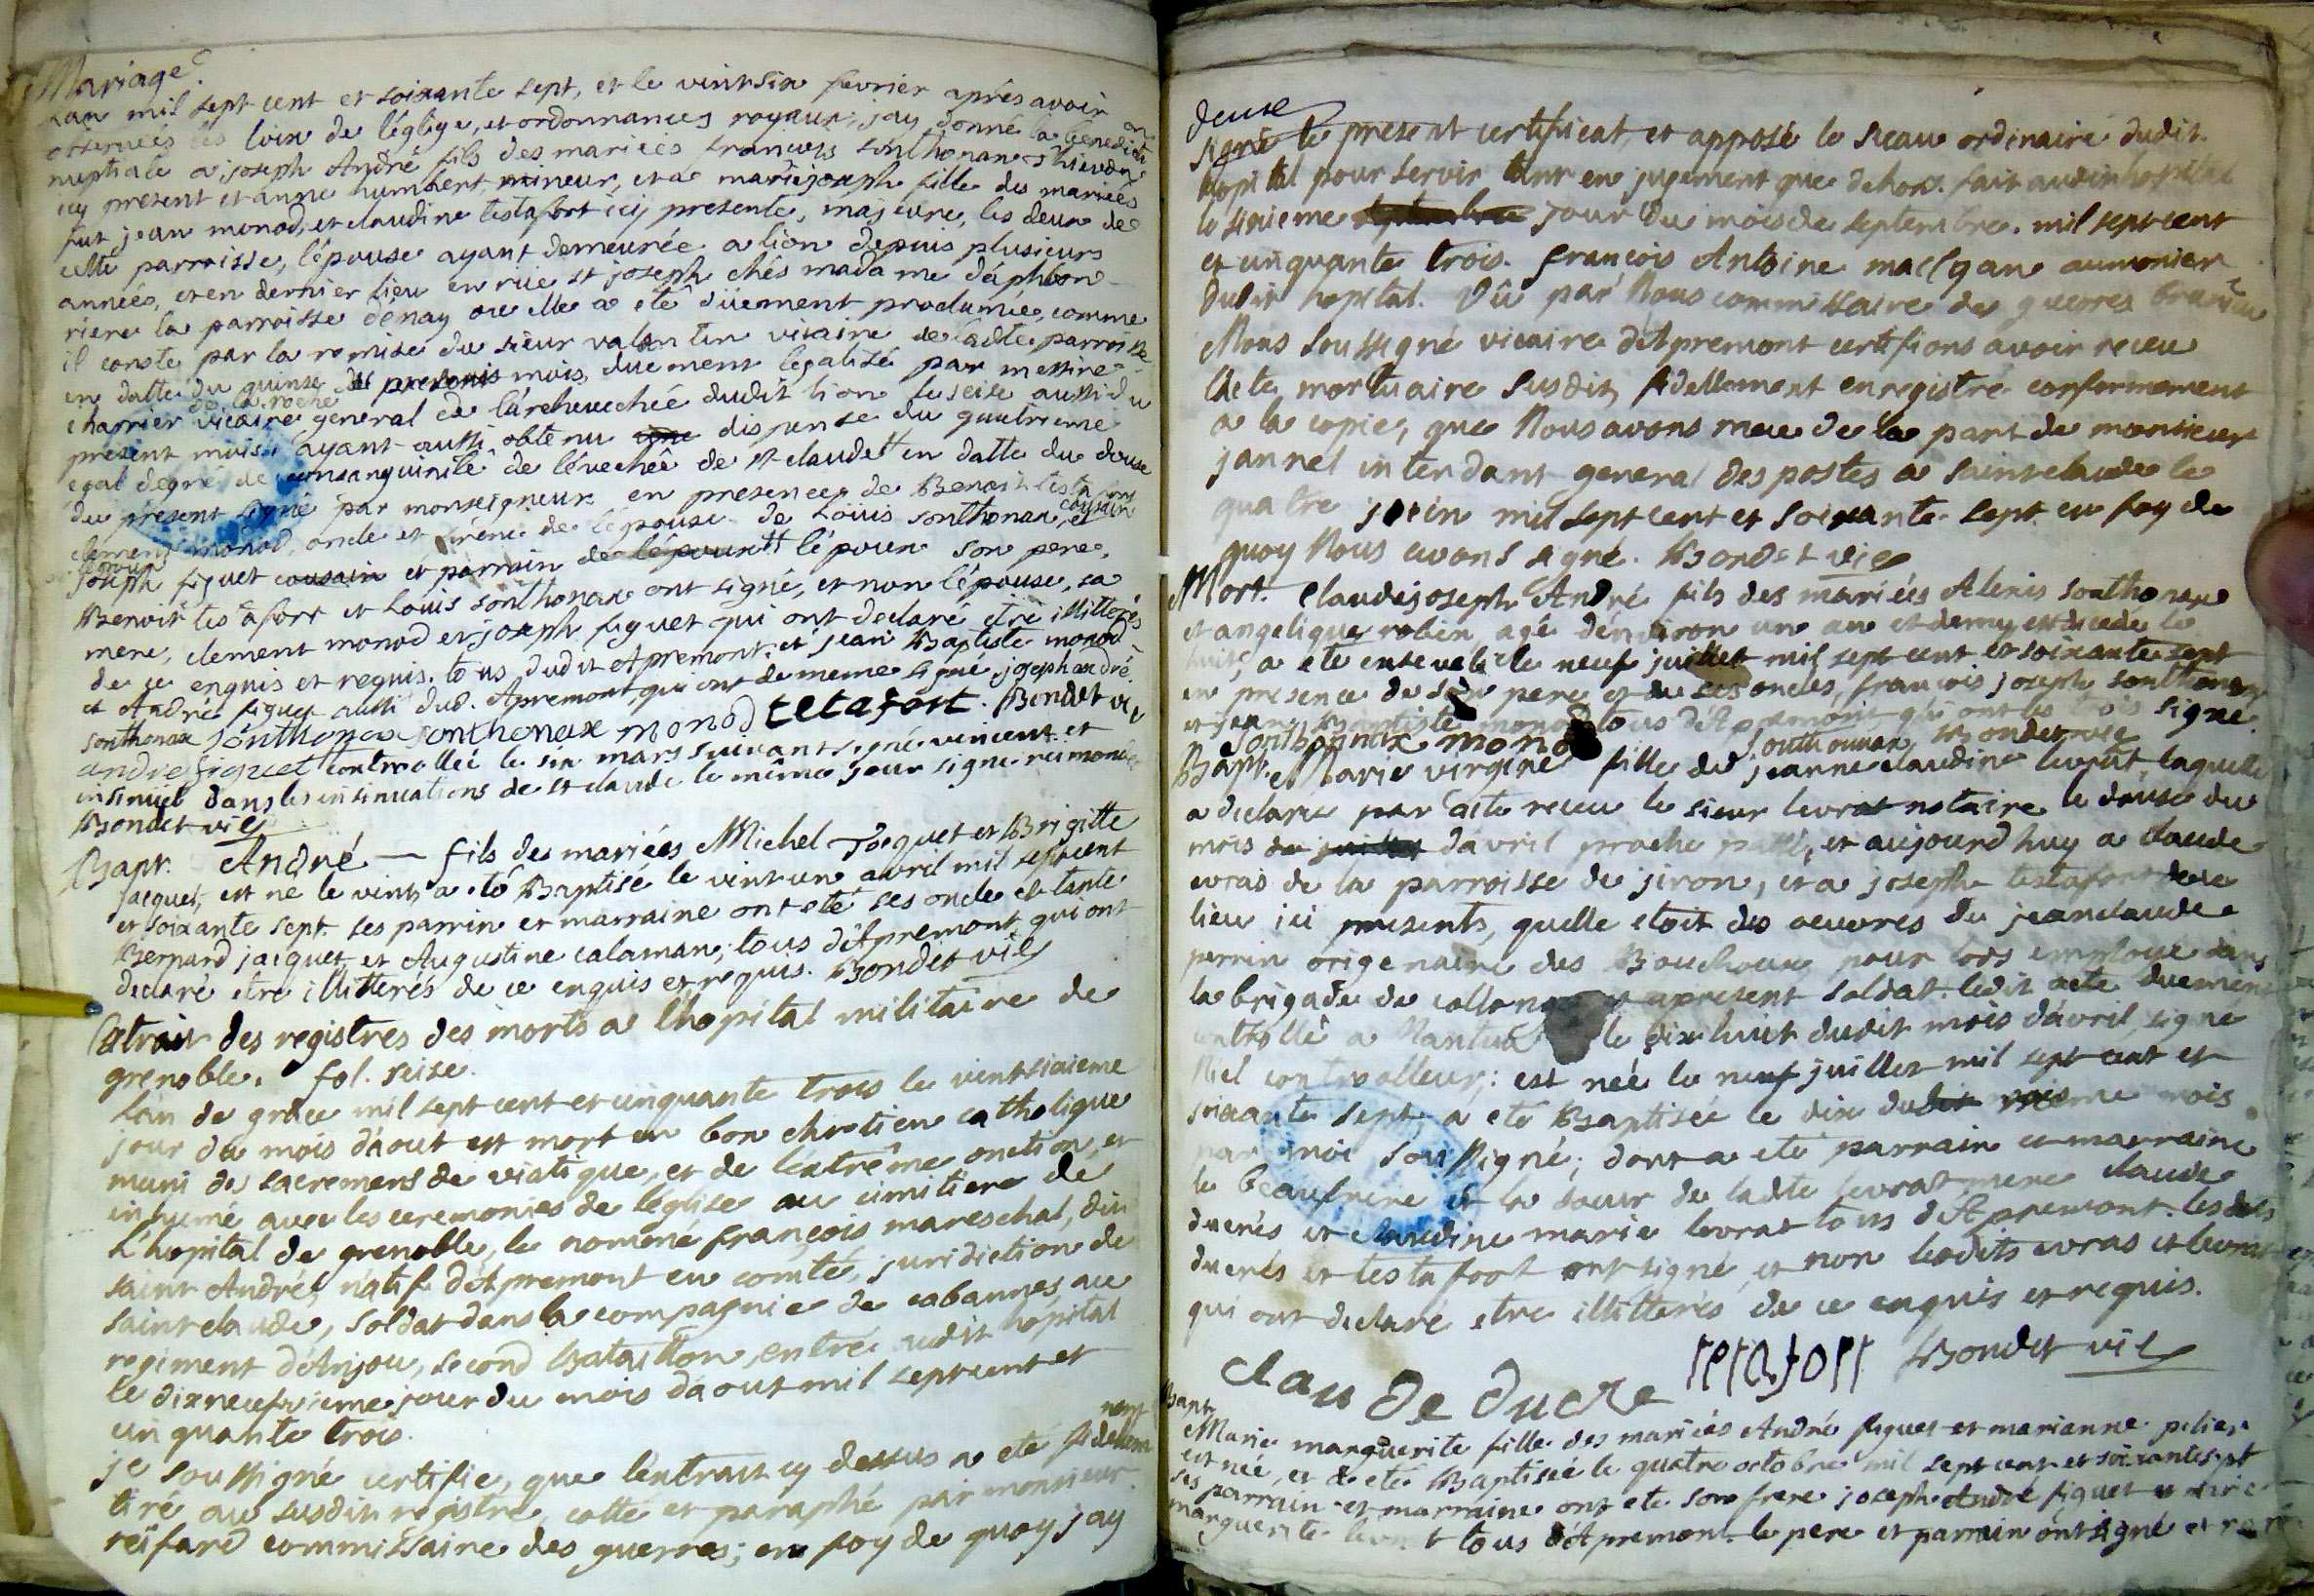 Mariage
Lan mil sept cent et soixante sept, et le vint six fevrier aprés avoir
observées les loix de l'églige, et ordonnances royaux, jay donné la benediction
nuptiale a joseph André fils des mariées françois sonthonax
icy present et anne humbert, mineur, et a mariejoseph fille des mariées
fut jean monod, et claudine testafort icy presente, majeure, les deux de
cette parroisse, l'épouse ayant demeurée a lion depuis plusieurs
années, et en dernier lieu en rüe st joseph chés madame déphéon
riere la parroisse dénay ou elle a eté düement proclamée, comme
il conste par la remise du sieur valentin vicaire de ladte parroisse
en datte du quinse du present mois, duement legalisé par messire
charrier de la roche vicaire general de l'archevechée dudit lion le seise aussi du
present mois, ayant aussi obtenu une dispense du quatrieme
egal degré de consanguinité de l'évechée de st claude en datte du douse
du present signé par monseigneur en presence de Benoit testafort
clement monod, oncle et de l'épouse de Louis sonthonax, et cousain
joseph figuet cousain et parrain de l'épour l'épour son pere,
Benoit testafort et Louis sonthonax ont signé, et non l'épouse, sa
mere, clement monod et joseph figuet qui ont declaré etre illitterés
de ce enquis et requis. tous dudit Apremont, et jean Baptiste monod
et André figuet aussi dud. Apremont, qui ont de meme signé, joseph andré
sonthonax sonthonax sonthonax monod tetafort. Bondet vic
andre figuet controllée le six mars suivant signé vincent et
insinüée dans les insinuations de st claude le même jour signé
Bondet vic
Bapt. André — fils des mariées Michel Jacquet et Brigitte
jacquet, est né le vint, a eté Baptisé le vint un avril mil sept cent
et soixante sept. ses parrin et marraine ont eté ses oncle et tante
Bernard jacquet et Augustine calaman, tous d'Apremont qui ont
declaré etre illitterés de ce enquis et requis. Bondet vic
Extrait des registres des morts a l'hopital militaire de
grenoble. fol. seise.
Lan de grâce mil sept cent et cinquante trois le vent sixieme
jour du mois d'aout est mort en bon chretien catholique
muni des sacremens de viatique, et de l'extrême onction, et
inhumé avec les ceremonies de l'église au cimitiere de
L'hopital de grenoble, le nommé françois mareschal, dit
saint André, natif d'Apremont en comté, juridiction de
saint claude, soldat dans la compagnie de cabannes, au
regiment d'Anjou, second Bataillon, entré audit hopital
le dixneufvieme jour du mois d'aout mil sept cent et
cinquante trois.
je soussigné certifie, que l'extrait cy dessus a eté fidellement
tiré au susdit registre, cotté et paraphé par monsieur
reifard commissaire des guerres; en foy de quoy jay
signé le present certificat, et apposé le sceau ordinaire dudit
hopital pour servir tant en jugement que dehors. fait audit hopital
le sixieme septembre jour du mois de septembre. mil sept cent
et cinquante trois. françois Antoine aumonier
dudit hopital. Vû par Nous commissaire des guerres
Nous soussigné vicaire d'Apremont certifions avoir receu
l'acte mortuaire susdit, fidellement enregistré conformement
a la copie, que Nous avons receu de la part de monsieur
jannel intendant general des postes a saint claude le
quatre juin mil sept cent et soixante sept. en foy de
quoy Nous avons signé. Bondet vic
Mort. Claudejoseph André fils des mariées Alexis sonthonax
et angelique robin, agé d'environ un an et demy est decedé le
huit, a eté enseveli le neuf juillet mil sept cent et soixante sept
en presence de son pere et de ses oncles, francois joseph sonthonax
et jean Baptiste monod tous d'Apremont qui ont les trois signé.
Sonthonnax monod Southonnax, Bondet vic
Bapt. Marie virgine fille de jeanne claudine levrat, laquelle
a declaré par acte receu le sieur levrat notaire le douse du
mois de juillet d'avril proche passé, et aujourd huy a claude
evras de la parroisse de jiron, et a joseph testafort de ce
lieu ici presents, quelle etoit des oeuvres de jeanclaude
perrin origenaire des Bouchoux pour lors employé dans
la brigade de et apresent soldat. ledit acte duement
controllé a Nantua le dix huit dudit mois d'avril signé
Niel controlleur; est née le neuf juillet mil sept cent et
soixante sept, a eté Baptisée le dix dudit mois meme mois
par moi soussigné; dont a eté parrain et marraine
le beaufrere et la soeur de ladte levrat mere claude
ducrés et claudine marie levrat tous d'Apremont. lesdits
ducrés et testafort ont signé, et non lesdits evras et levrat
qui ont declaré etre illitterés de ce enquis et requis.
Clau de ducre tetafort Bondet vic
Bapt.
Marie marguerite fille des mariées André figuet et marianne
est née, et a eté Baptisée le quatre octobre mil sept cent et soixante sept
ses parrain et marraine ont eté son frere joseph André figuet et
marguerite tous d'Apremont. le pere et parrain ont signé et